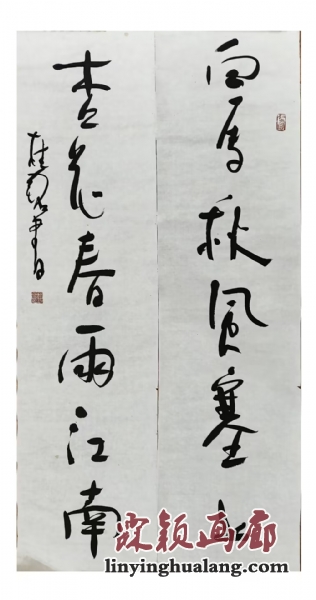 白馬秋風塞上
杏花春雨江南
霖颖画廊
linyinghualang.com